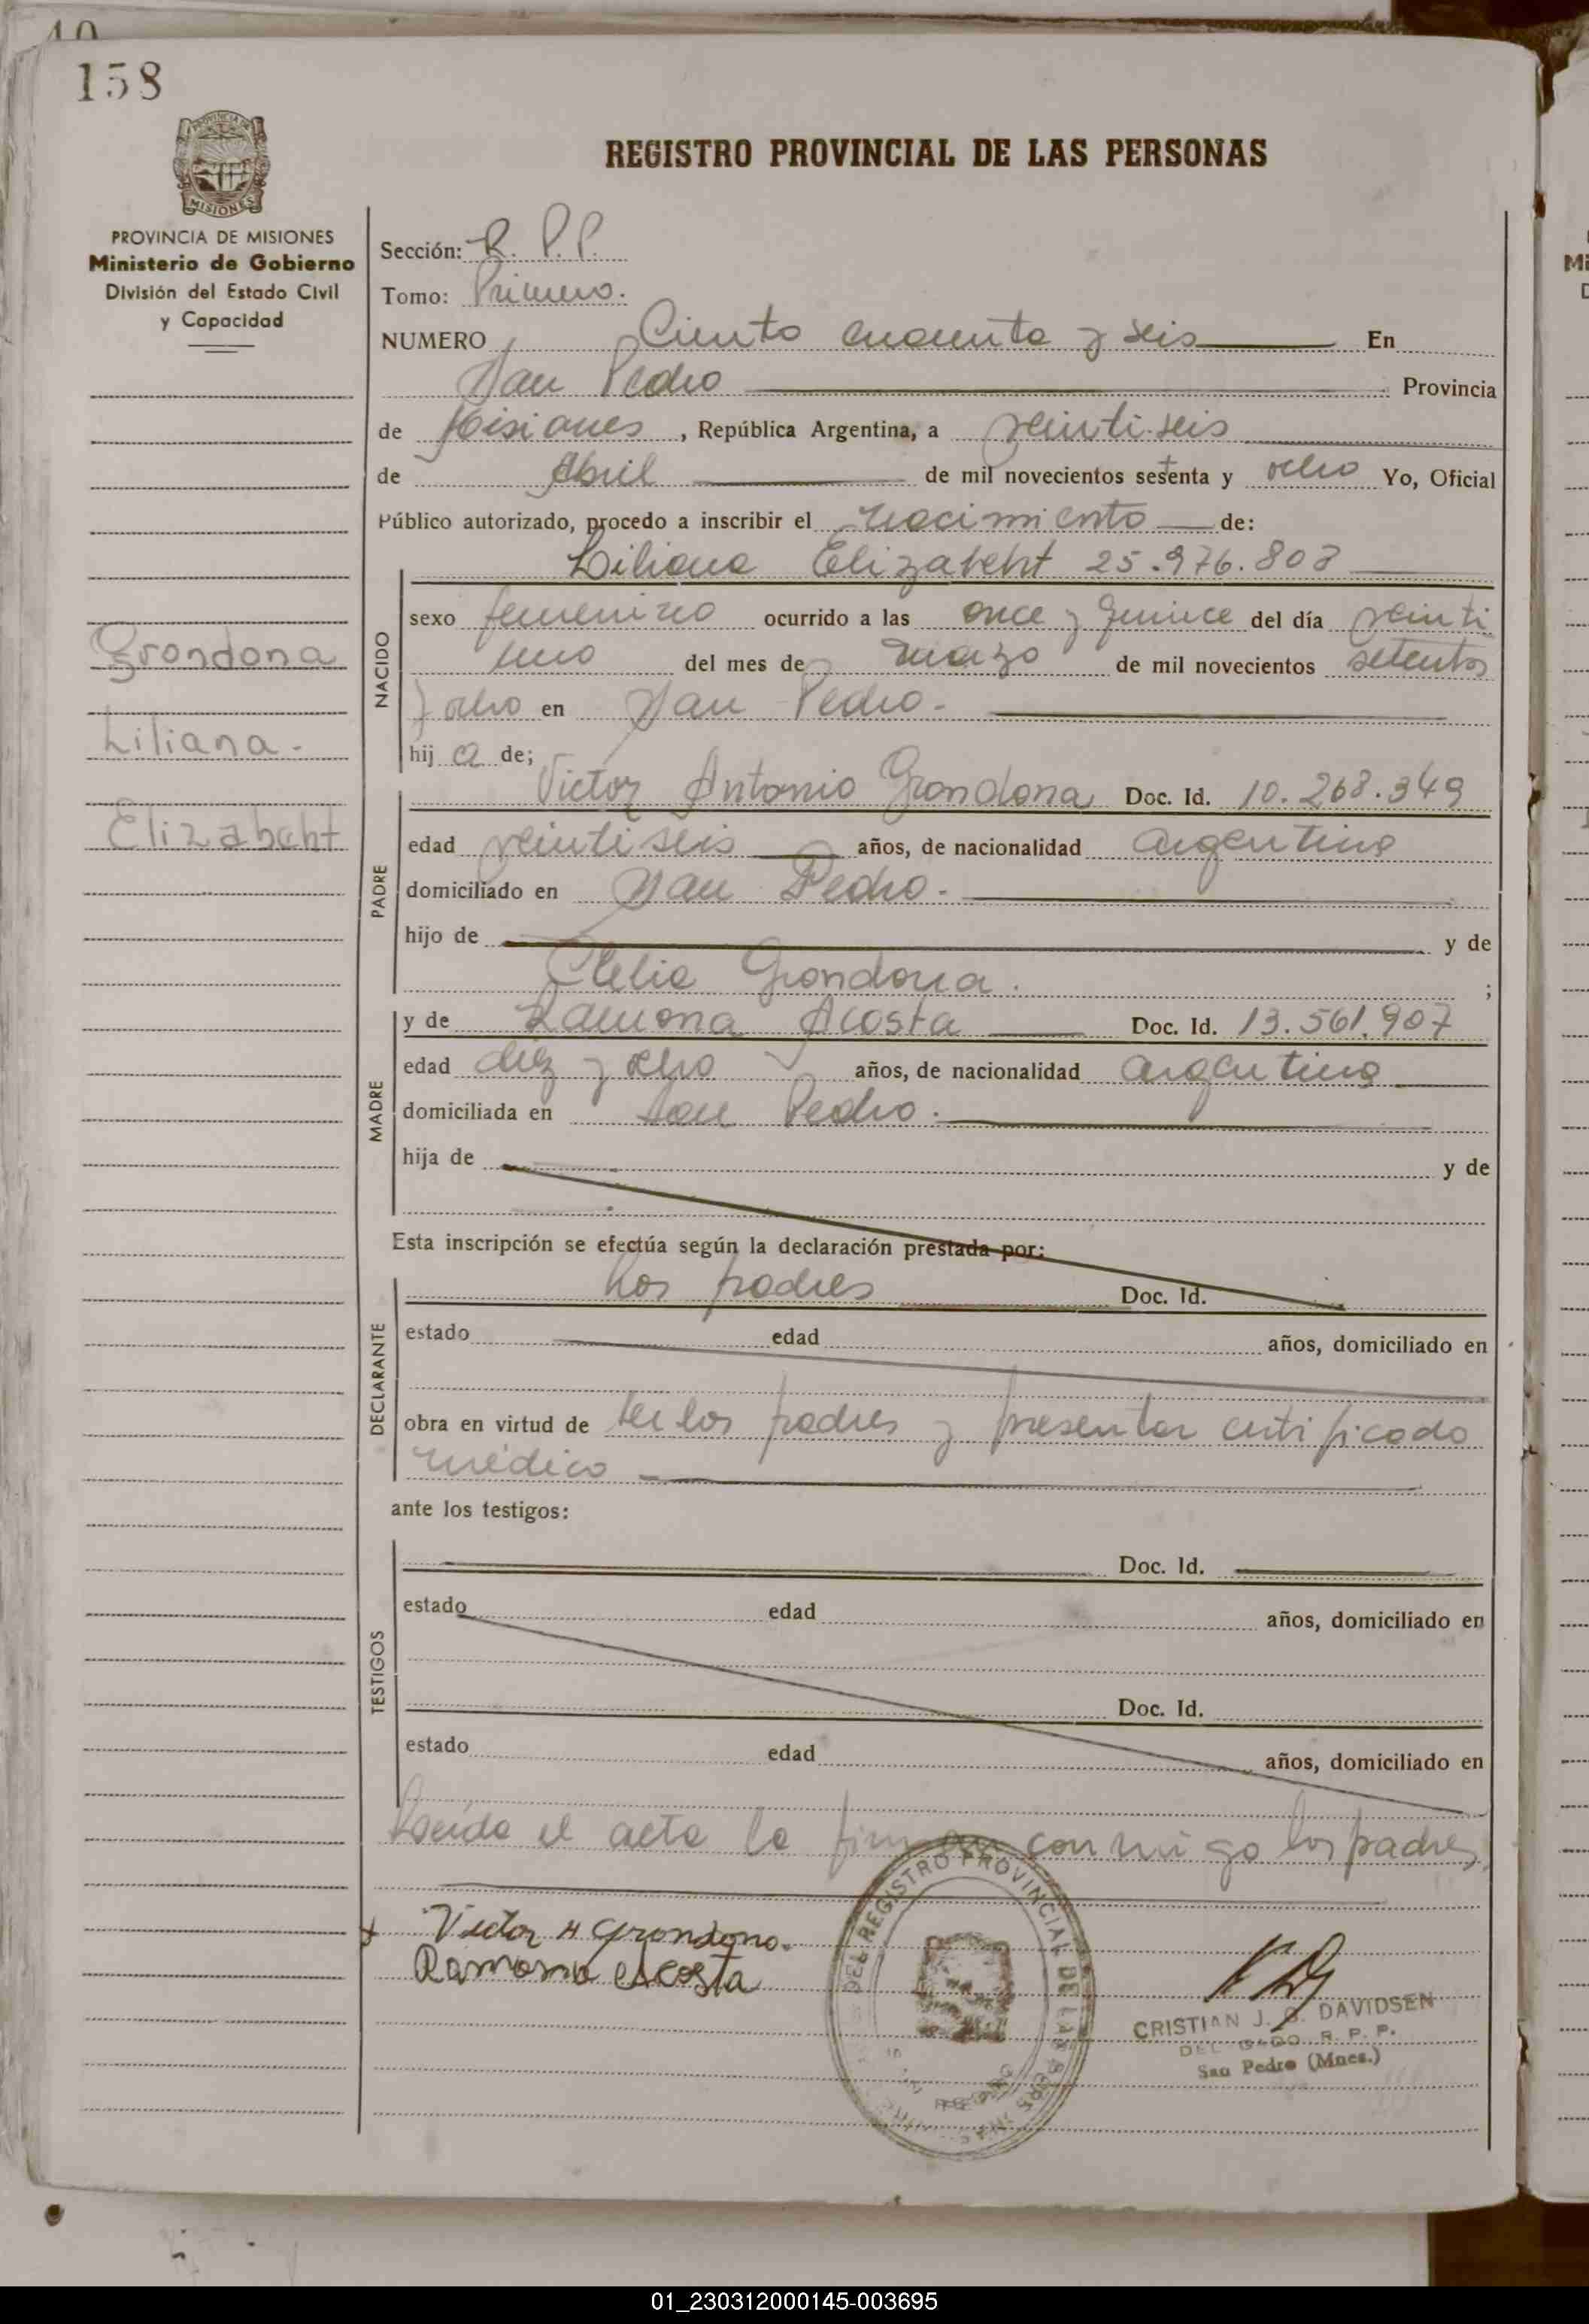 158
PROVINCIA DE MISIONES
PROVINCIA DE MISIONES
Ministerio de Gobierno
División del Estado Civil
y Capacidad
Grondona
Liliana.
Elizabeht
REGISTRO PROVINCIAL DE LAS PERSONAS
Sección: R. P.P.
Tomo: Primero.
NUMERO Ciento cuarenta y seis En
San Pedro Provincia
de Misiones, República Argentina, a veintiseis
de Abril de mil novecientos setenta y ocho Yo, Oficial
Público autorizado, procedo a inscribir el nacimiento de:
Liliana Elizabeht 25.976.803
NACIDO
sexo femenino ocurrido a las once y quince del día veinti
uno del mes de marzo de mil novecientos setenta
y ocho en San Pedro.
hij a de;
PADRE
Victor Antonio Grondona Doc. Id. 10.268.349
edad veintiseis años, de nacionalidad argentina
domiciliado en San Pedro.
hijo de y de
Clelia Grondona. ;
MADRE
y de Ramona Acosta Doc. Id. 13.561.907
edad diez y ocho años, de nacionalidad argentina
domiciliada en San Pedro.
hija de y de
Esta inscripción se efectúa según la declaración prestada por:
DECLARANTE
Los padres Doc. Id.
estado edad años, domiciliado en
obra en virtud de ser los padres y presentar certificado
médico
ante los testigos:
TESTIGOS
Doc. Id.
estado edad años, domiciliado en
Doc. Id.
estado edad años, domiciliado en
Leída el acta la firman conmigo los padres,
Victor A Grondona.
Ramona Acosta
DEL REGISTRO PROVINCIAL DE LAS PERSONAS
CRISTIAN J. G. DAVIDSEN
DELEGADO R. P. P.
San Pedro (Mnes.)
01_230312000145-003695